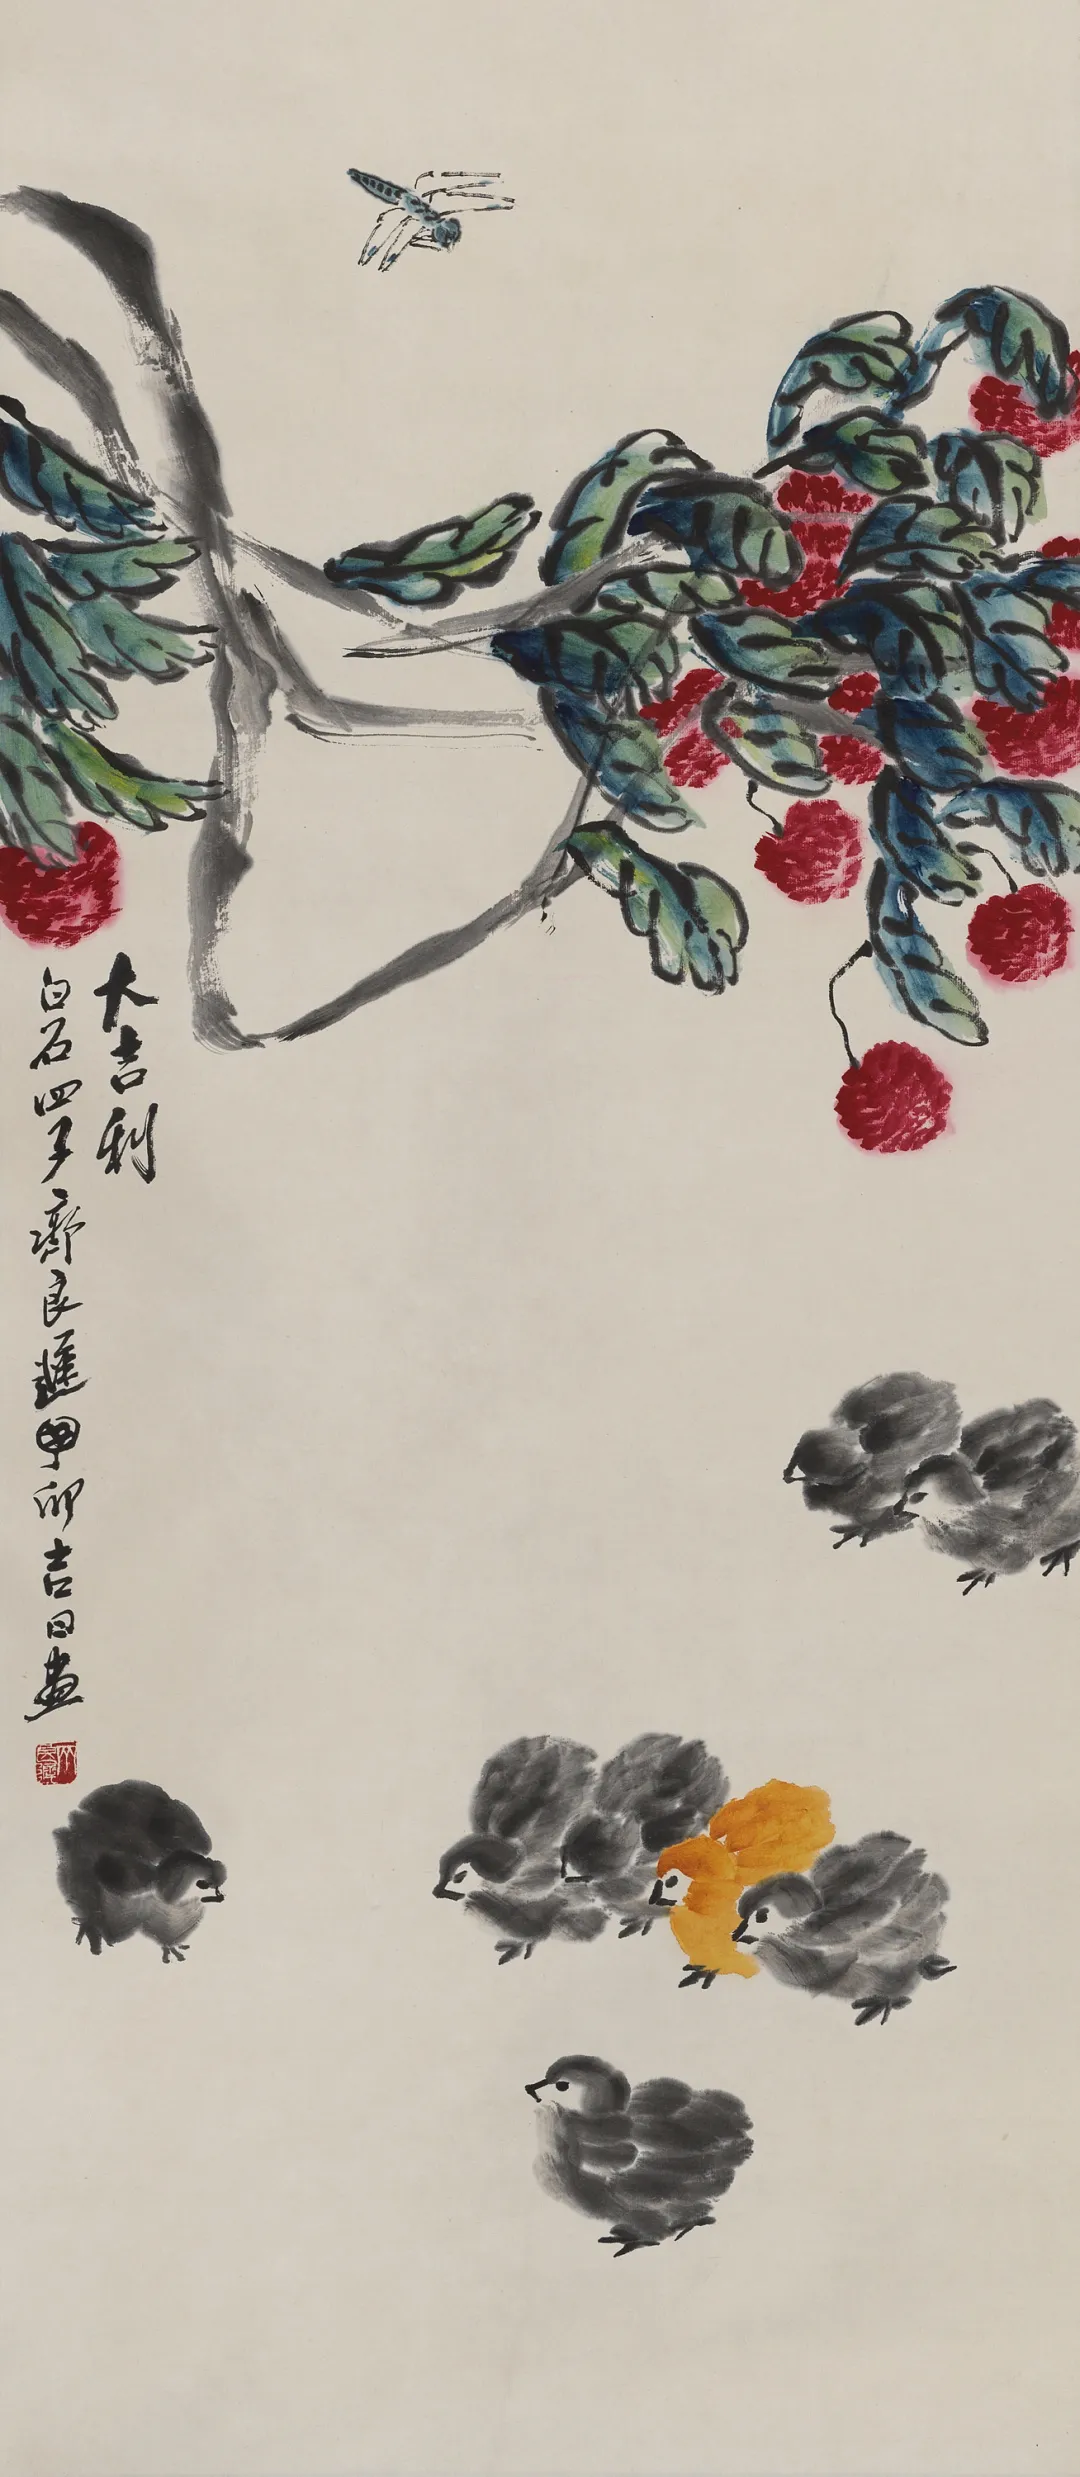 大吉利
白石四子齊良遲卯吉日畫